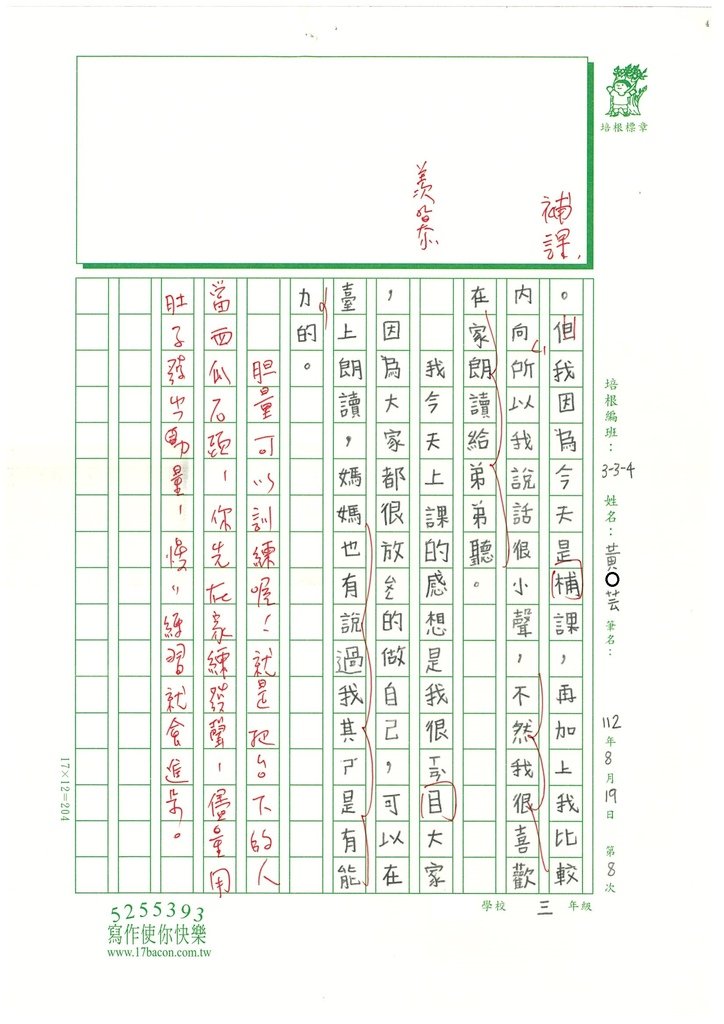 培根標章
補課
羨慕
培根編班：3-3-4 姓名：黃芸 筆名： 112年8月19日 第8次
。但我因為今天是補課，再加上我比較
內向所以我說話很小聲，不然我很喜歡
在家朗讀給弟弟聽。
我今天上課的感想是我很目大家
，因為大家都很放的做自己，可以在
臺上朗讀，媽媽也有說過我其ㄕˊ是有能
力的。
胆量可以訓練喔！就是把台下的人
當西瓜石頭，你先在家練發聲，儘量用
肚子發出量，慢〃練習就會進步。
17×12=204
學校 三 年級
5255393
寫作使你快樂
www.17bacon.com.tw